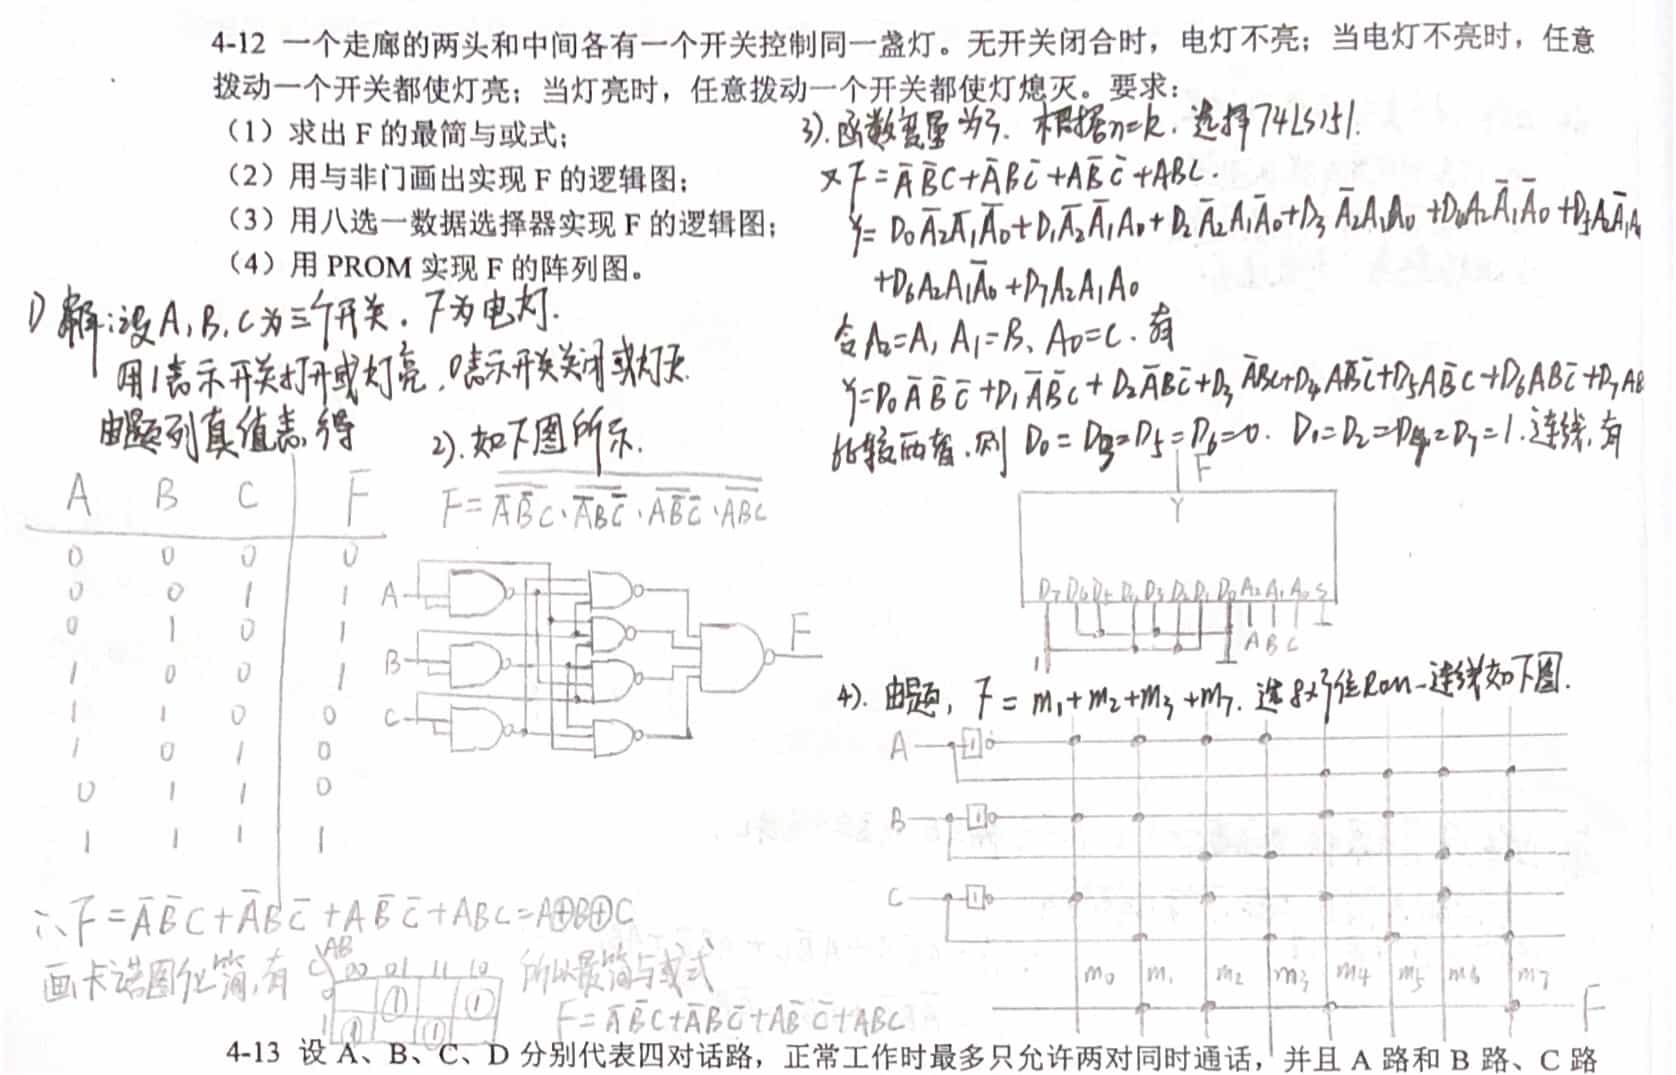 4-12 一个走廊的两头和中间各有一个开关控制同一盏灯。无开关闭合时，电灯不亮；当电灯不亮时，任意
拨动一个开关都使灯亮；当灯亮时，任意拨动一个开关都使灯熄灭。要求：
（1）求出 F 的最简与或式；
（2）用与非门画出实现 F 的逻辑图；
（3）用八选一数据选择器实现 F 的逻辑图；
（4）用 PROM 实现 F 的阵列图。
1) 解：设A, B, C为三个开关．F为电灯．
用1表示开关打开或灯亮，0表示开关关闭或灯灭．
由题列真值表，得
A B C F
0 0 0 0
0 0 1 1
0 1 0 1
1 0 0 1
1 1 0 0
1 0 1 0
0 1 1 0
1 1 1 1
∴ F = A̅B̅C + A̅BC̅ + AB̅C̅ + ABC = A⊕B⊕C
画卡诺图化简，有
C AB 00 01 11 10
0 1 1
1 1 1
所以最简与或式
F = A̅B̅C + A̅BC̅ + AB̅C̅ + ABC
2). 如下图所示．
A
B
C
F
3). 函数变量为3．根据n=k，选择74LS151.
又F = A̅B̅C + A̅BC̅ + AB̅C̅ + ABC.
Y = D₀A̅₂A̅₁A̅₀ + D₁A̅₂A̅₁A₀ + D₂A̅₂A₁A̅₀ + D₃A̅₂A₁A₀ + D₄A₂A̅₁A̅₀ + D₅A₂A̅₁A₀
+ D₆A₂A₁A̅₀ + D₇A₂A₁A₀
令A₂=A, A₁=B、A₀=C．有
Y = D₀A̅B̅C̅ + D₁A̅B̅C + D₂A̅BC̅ + D₃A̅BC + D₄AB̅C̅ + D₅AB̅C + D₆ABC̅ + D₇AB
比较两者，则 D₀ = D₃ = D₅ = D₆ = 0. D₁ = D₂ = D₄ = D₇ = 1. 连线，有
F
Y
D₇ D₆ D₅ D₄ D₃ D₂ D₁ D₀ A₂ A₁ A₀ S
1 A B C
4). 由题，F = m₁ + m₂ + m₃ + m₇.
连线如下图．
A 1
B 1
C 1
m₀ m₁ m₂ m₃ m₄ m₅ m₆ m₇
F
4-13 设 A、B、C、D 分别代表四对话路，正常工作时最多只允许两对同时通话，并且 A 路和 B 路、C 路